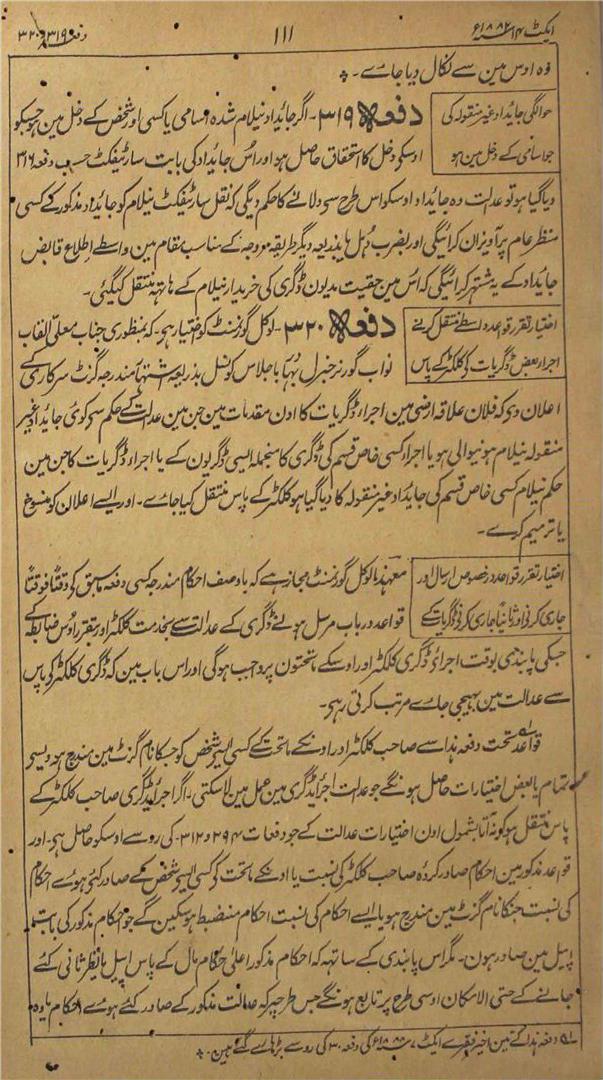 ایکٹ ۱۴ سنہ ۱۸۸۲ع
۱۱۱
دفعہ ۳۱۹ و ۳۲۰
وہ اوس مین سے نکال دیا جاے۔
حوالگی جائیداد غیر منقولہ کی
جو اسامی کے دخل مین ہو
دفعہ ۳۱۹۔ اگر جائیداد نیلام شدہ اسامی یا کسی اور شخص کے دخل مین ہو جسکو
اوسکو دخل کا استحقاق حاصل ہو اور اُس جائیداد کی بابت سارٹیفکٹ حسب دفعہ ۳۱۶
دیا گیا ہو تو عدالت وہ جائیداد اوسکو اس طرح سے دلانے کا حکم دیگی کہ نقل سارٹیفکٹ نیلام کو جائیداد مذکور کے کسی
منظر عام پر آویزان کرائیگی اور بضرب دُہل یا بذریعہ دیگر طریقہ مروجہ کے مناسب مقام مین واسطے اطلاع قابض
جائیداد کے یہ مشتہر کرائیگی کہ اُس مین حقیت مدیون ڈگری کی خریدار نیلام کے ہاتہہ منتقل کیگئی۔
اختیار تقرر قواعد واسطے منتقل کرنے
اجراے بعض ڈگریات کی کلکٹر کے پاس
دفعہ ۳۲۰۔ لوکل گورنمنٹ کو اختیار ہے کہ بمنظوری جناب معلّی القاب
نواب گورنر جنرل بہادر باجلاس کونسل بذریعہ اشتہار مندرجہ گزٹ سرکاری کے
اعلان دی کہ فلان علاقہ ارضی مین اجراے ڈگریات کا اون مقدمات مین جن مین عدالت کے حکم سے کوئی جائیداد غیر
منقولہ نیلام ہونیوالی ہو یا اجراے کسی خاص قسم کی ڈگری کا منجملہ ایسی ڈگریون کے یا اجراے ڈگریات کا جن مین
حکم نیلام کسی خاص قسم کی جائیداد غیر منقولہ کا دیا گیا ہو کلکٹر کے پاس منتقل کیا جاے۔ اور ایسے اعلان کو منسوخ
یا ترمیم کرے۔
اختیار تقرر قواعد درخصوص ارسال اور
جاری کرنی اور ثانیاً جاری کرنی ڈگریات کے
معہذا لوکل گورنمنٹ مجاز ہے کہ باوصف احکام مندرجہ کسی دفعہ ماسبق کو وقتاً فوقتاً
قواعد درباب مرسل ہونے ڈگری کے عدالت سے بخدمت کلکٹر اور بتقرر اوس ضابطہ کے
جسکی پابندی بوقت اجراے ڈگری کلکٹر اور اوسکے ماتحتون پر واجب ہوگی اور اس باب مین کہ ڈگری کلکٹر کے پاس
سے عدالت مین بہیجی جاے مرتب کرتی رہے۔
قواعد تحت دفعہ ہذا سے صاحب کلکٹر اور اونکے ماتحت کے کسی ایسے شخص کو جسکا نام گزٹ مین مندرج ہو ویسے
تمام یا بعض اختیارات حاصل ہونگے جو عدالت اجراے ڈگری مین عمل مین لاسکتی۔ اگر اجراے ڈگری صاحب کلکٹر کے
پاس منتقل ہوکر نہ آتا بشمول اون اختیارات عدالت کے جو دفعات ۲۹۴ و ۳۱۲ کی رو سے اوسکو حاصل ہے۔ اور
قواعد مذکور مین احکام صادر کردہ صاحب کلکٹر کی نسبت یا اونکے ماتحت کو کسی ایسے شخص کے صادر کئے ہوے احکام
کی نسبت جنکا نام گزٹ مین مندرج ہو یا ایسے احکام کی نسبت احکام منضبط ہوسکین گے جو احکام مذکور کی بابت
اپیل مین صادر ہون۔ مگر اس پابندی کے ساتہہ کہ احکام مذکور اعلیٰ حکام مال کے پاس اپیل یا نظر ثانی کئے
جانے کے حتی الامکان اوسی طرح پر تابع ہونگے جس طرح پر کہ عدالت مذکور کے صادر کئے ہوے احکام
دفعہ ہذا کے تین اخیر فقرے ایکٹ ۷ سنہ ۱۸۸۸ع کی دفعہ ۳۰ کی رو سے بڑہاے گئے ہین۔